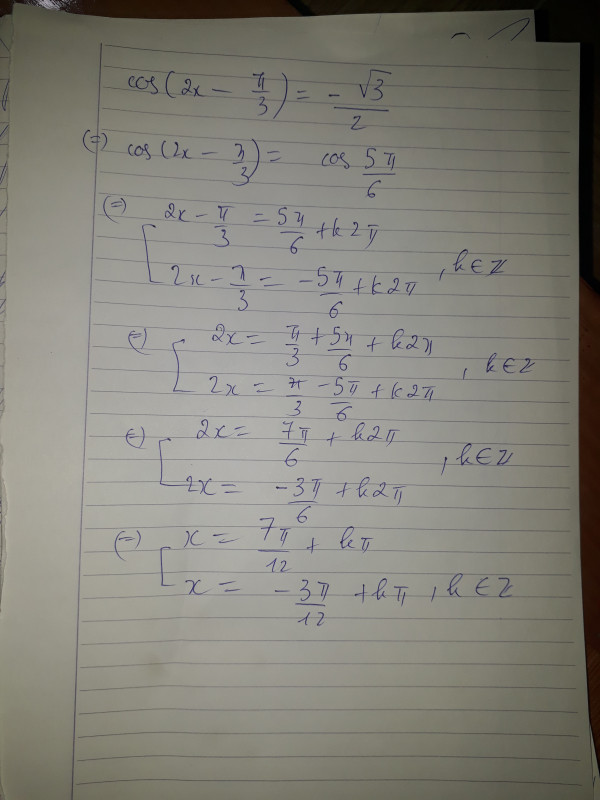 cos(2x - π/3) = -√3/2
(=) cos(2x - π/3) = cos 5π/6
(=) [ 2x - π/3 = 5π/6 + k2π
2x - π/3 = -5π/6 + k2π , k∈Z
(=) [ 2x = π/3 + 5π/6 + k2π
2x = π/3 - 5π/6 + k2π , k∈Z
(=) [ 2x = 7π/6 + k2π
2x = -3π/6 + k2π , k∈Z
(=) [ x = 7π/12 + kπ
x = -3π/12 + kπ , k∈Z